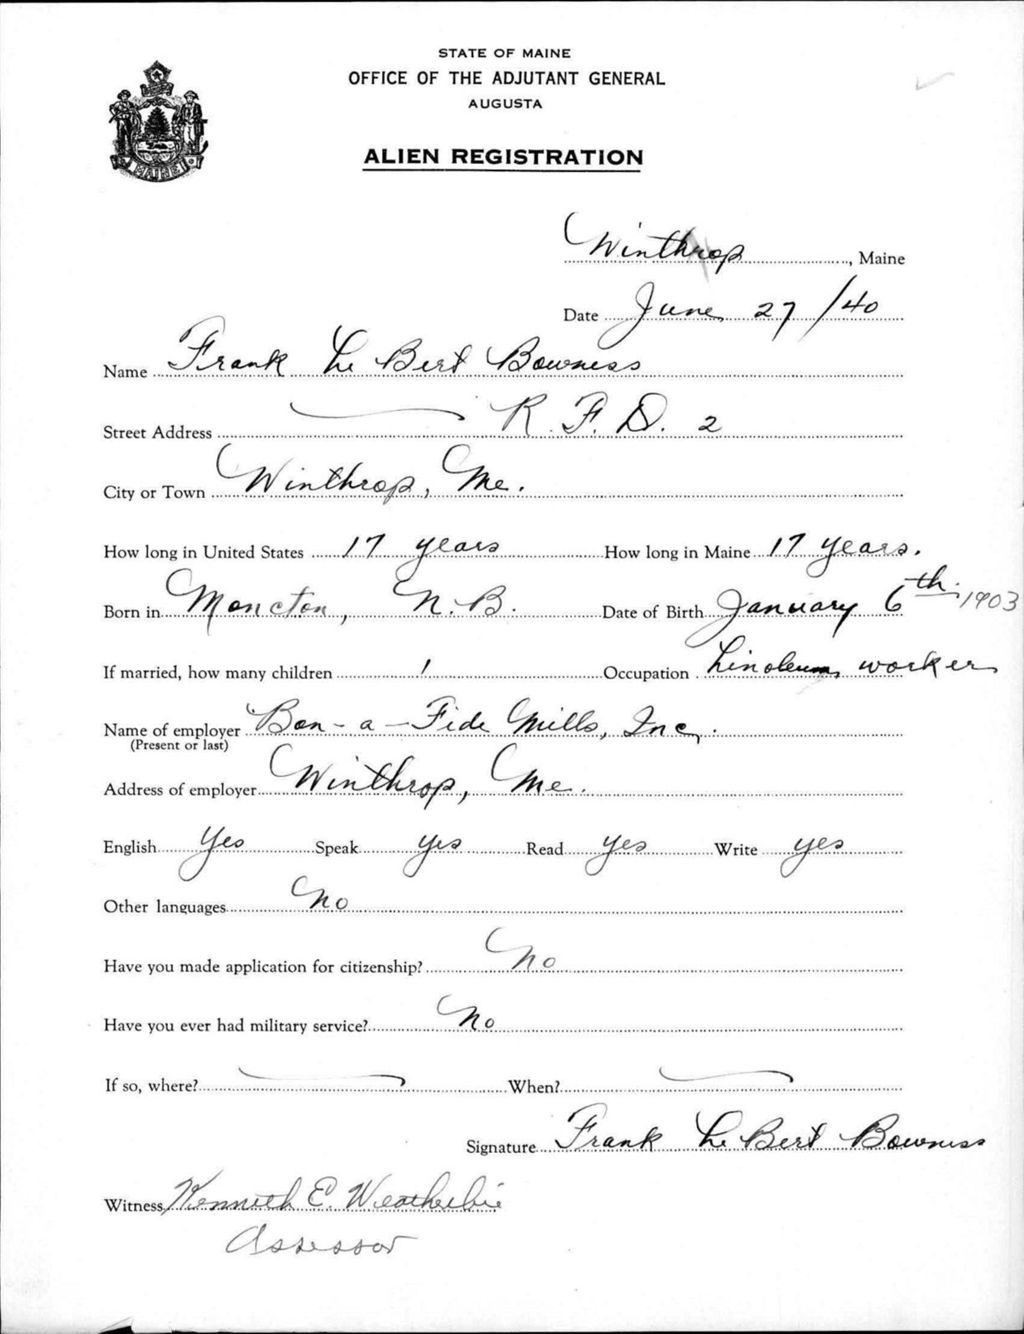 STATE OF MAINE
OFFICE OF THE ADJUTANT GENERAL
AUGUSTA
ALIEN REGISTRATION
Winthrop, Maine
Date June 27/40
Name Frank Le Bert Bowness
Street Address R. F. D. 2
City or Town Winthrop, Me.
How long in United States 17 years How long in Maine 17 years.
Born in Moncton, N.B. Date of Birth January 6th. 1903
If married, how many children 1 Occupation Linoleum worker
Name of employer Bon-a-Fide Mills, Inc.
(Present or last)
Address of employer Winthrop, Me.
English Yes Speak yes Read yes Write yes
Other languages No
Have you made application for citizenship? No
Have you ever had military service? No
If so, where? When?
Signature Frank Le Bert Bowness
Witness Kenneth E. Weatherbie
Assessor
MAINE